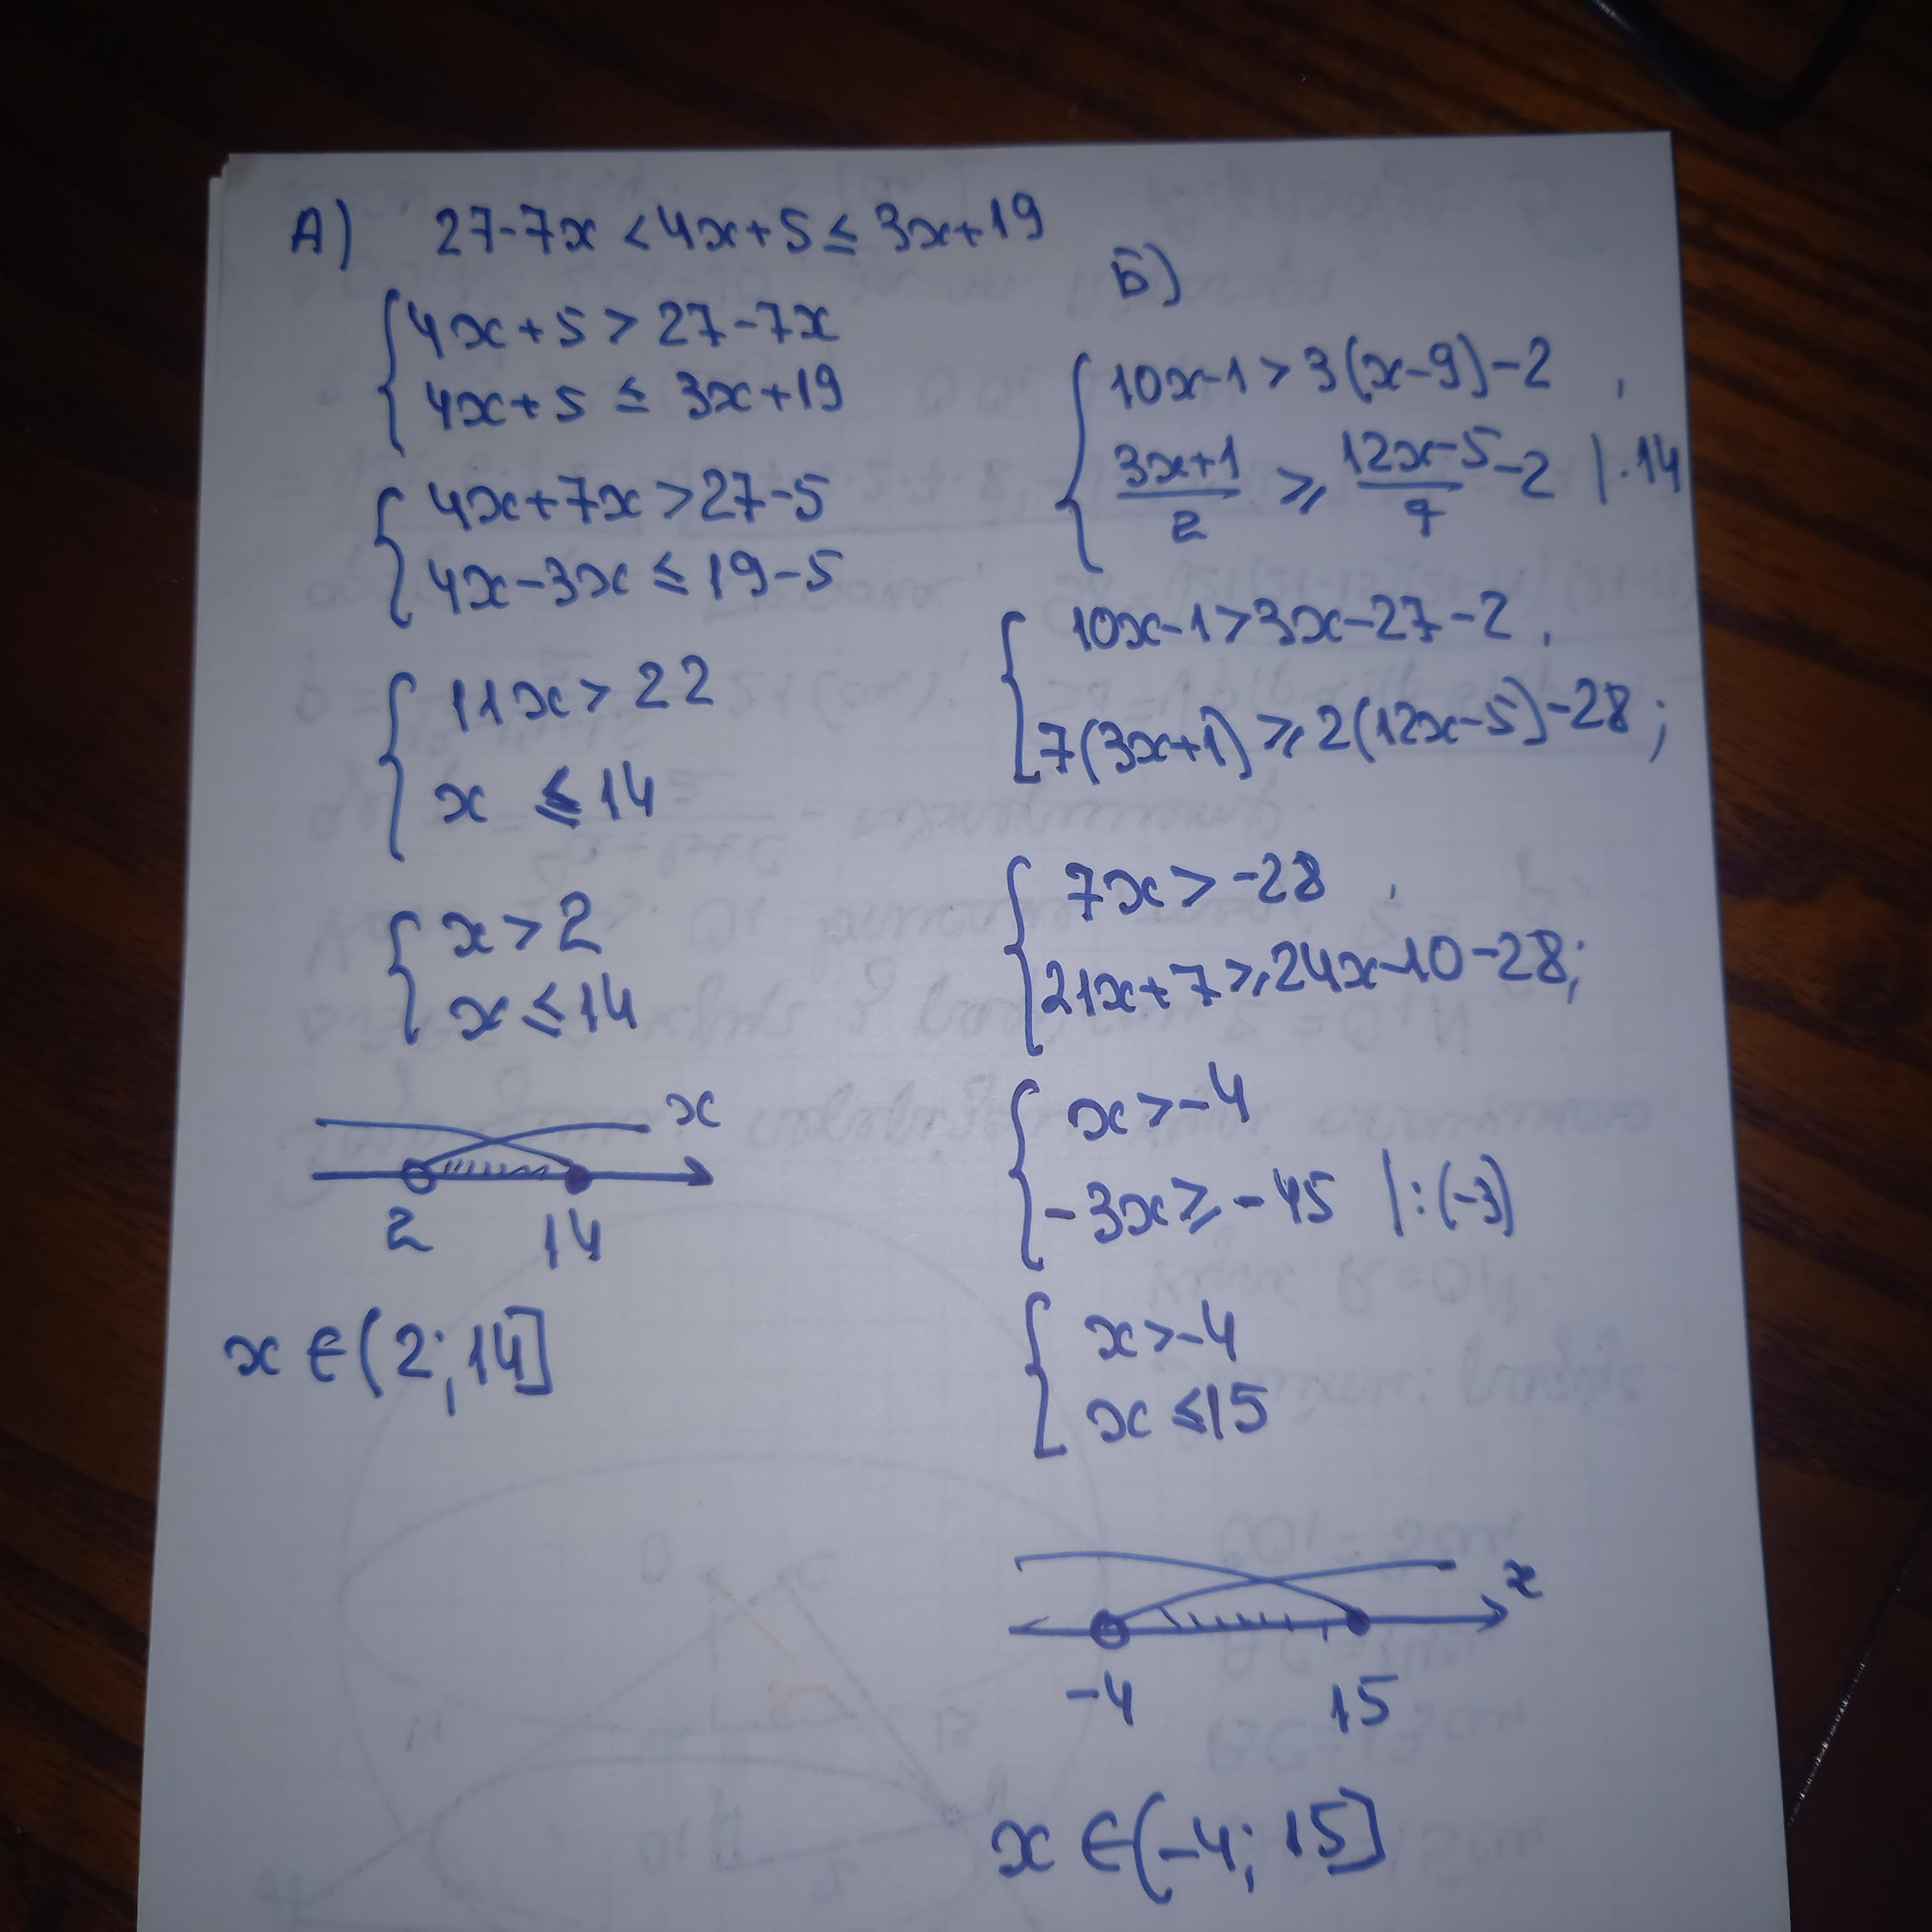 А) 27-7x < 4x+5 ≤ 3x+19
{ 4x+5 > 27-7x
4x+5 ≤ 3x+19
{ 4x+7x > 27-5
4x-3x ≤ 19-5
{ 11x > 22
x ≤ 14
{ x > 2
x ≤ 14
x
2 14
x ∈ (2; 14]
Б)
{ 10x-1 > 3(x-9)-2 ,
(3x+1)/2 ≥ (12x-5)/7 -2 | · 14
{ 10x-1 > 3x-27-2 ,
7(3x+1) ≥ 2(12x-5)-28 ;
{ 7x > -28 ,
21x+7 ≥ 24x-10-28;
{ x > -4
-3x ≥ -45 | : (-3)
{ x > -4
x ≤ 15
x
-4 15
x ∈ (-4; 15]